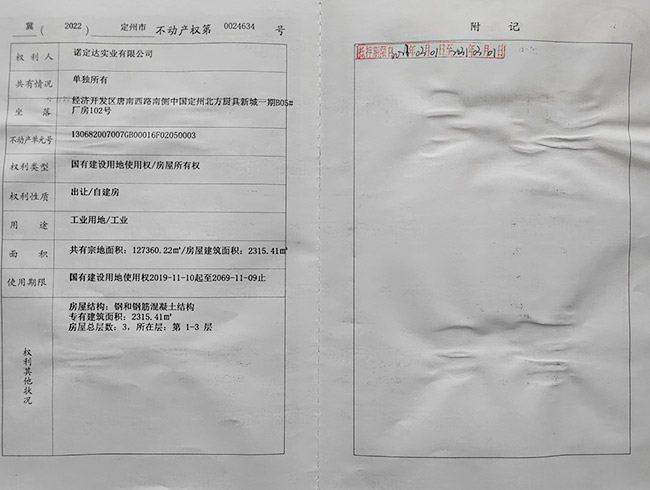 冀 ( 2022 ) 定州市 不动产权第 0024634 号
权利人 诺定达实业有限公司
共有情况 单独所有
坐落 经济开发区唐南西路南侧中国定州北方厨具新城一期B05#
厂房102号
不动产单元号 130682007007GB00016F02050003
权利类型 国有建设用地使用权/房屋所有权
权利性质 出让/自建房
用途 工业用地/工业
面积 共有宗地面积：127360.22㎡/房屋建筑面积：2315.41㎡
使用期限 国有建设用地使用权2019-11-10起至2069-11-09止
权利其他状况
房屋结构：钢和钢筋混凝土结构
专有建筑面积：2315.41㎡
房屋总层数：3，所在层：第 1-3 层
附记